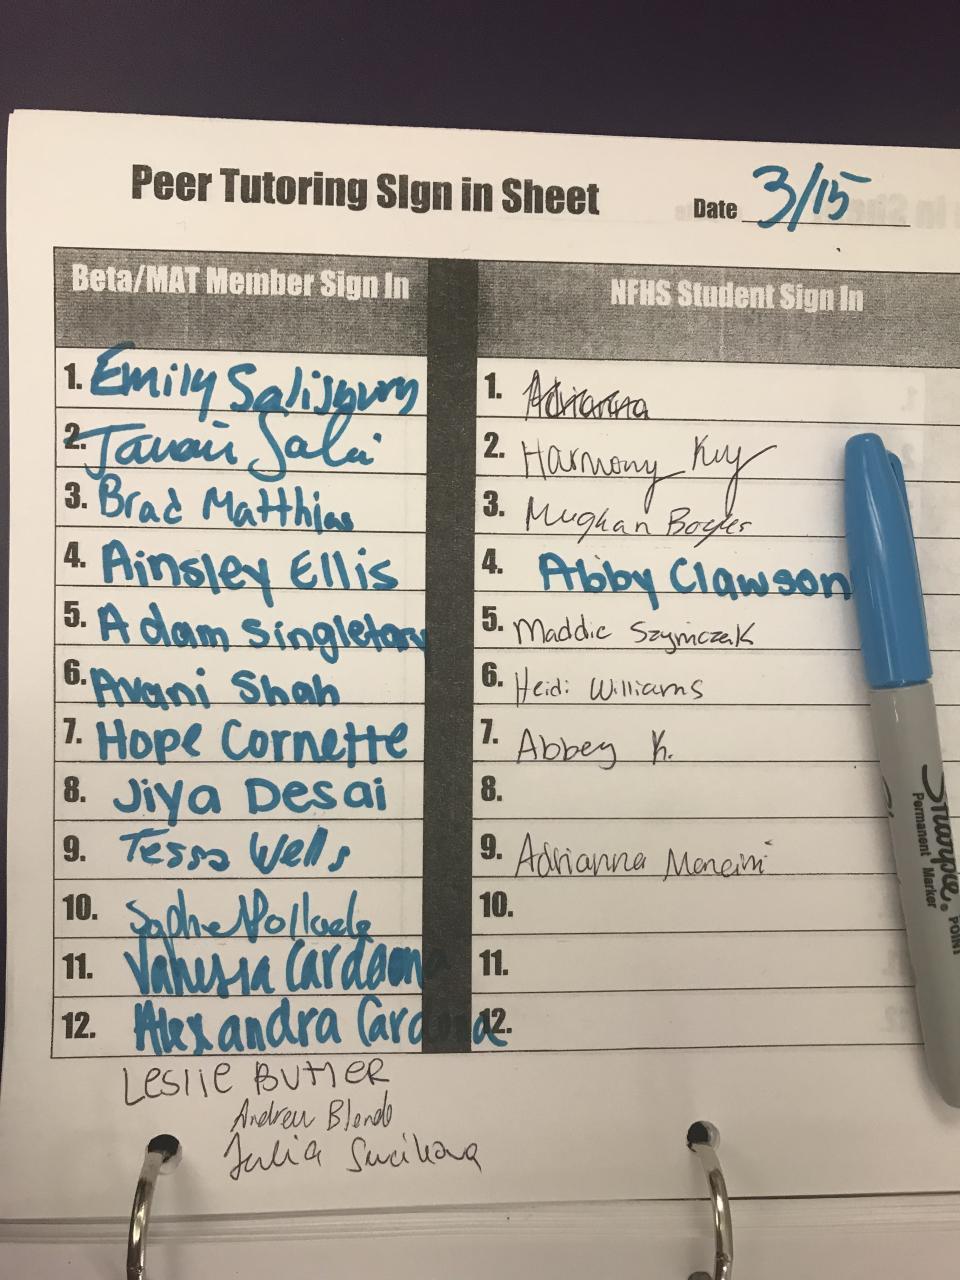 Peer Tutoring SIgn in Sheet
Date 3/15
Beta/MAT Member Sign In
NFHS Student Sign In
1. Emily Salisbury
1. Adrianna
2.
2. Harmony Key
3. Brad Matthias
3. Meghan
4. Ainsley Ellis
4. Abby Clawson
5. Adam Singleton
5. Maddie Szymczak
6. Avani Shah
6. Heidi Williams
7. Hope Cornette
7. Abbey K.
8. Jiya Desai
8.
9. Tessa Wells
9. Adrianna
10.
10.
11. Vanessa Cardoona
11.
12. Alexandra Cardona
12.
Leslie Butler
Andrew Blando
Julia
Sharpie®
Permanent Marker